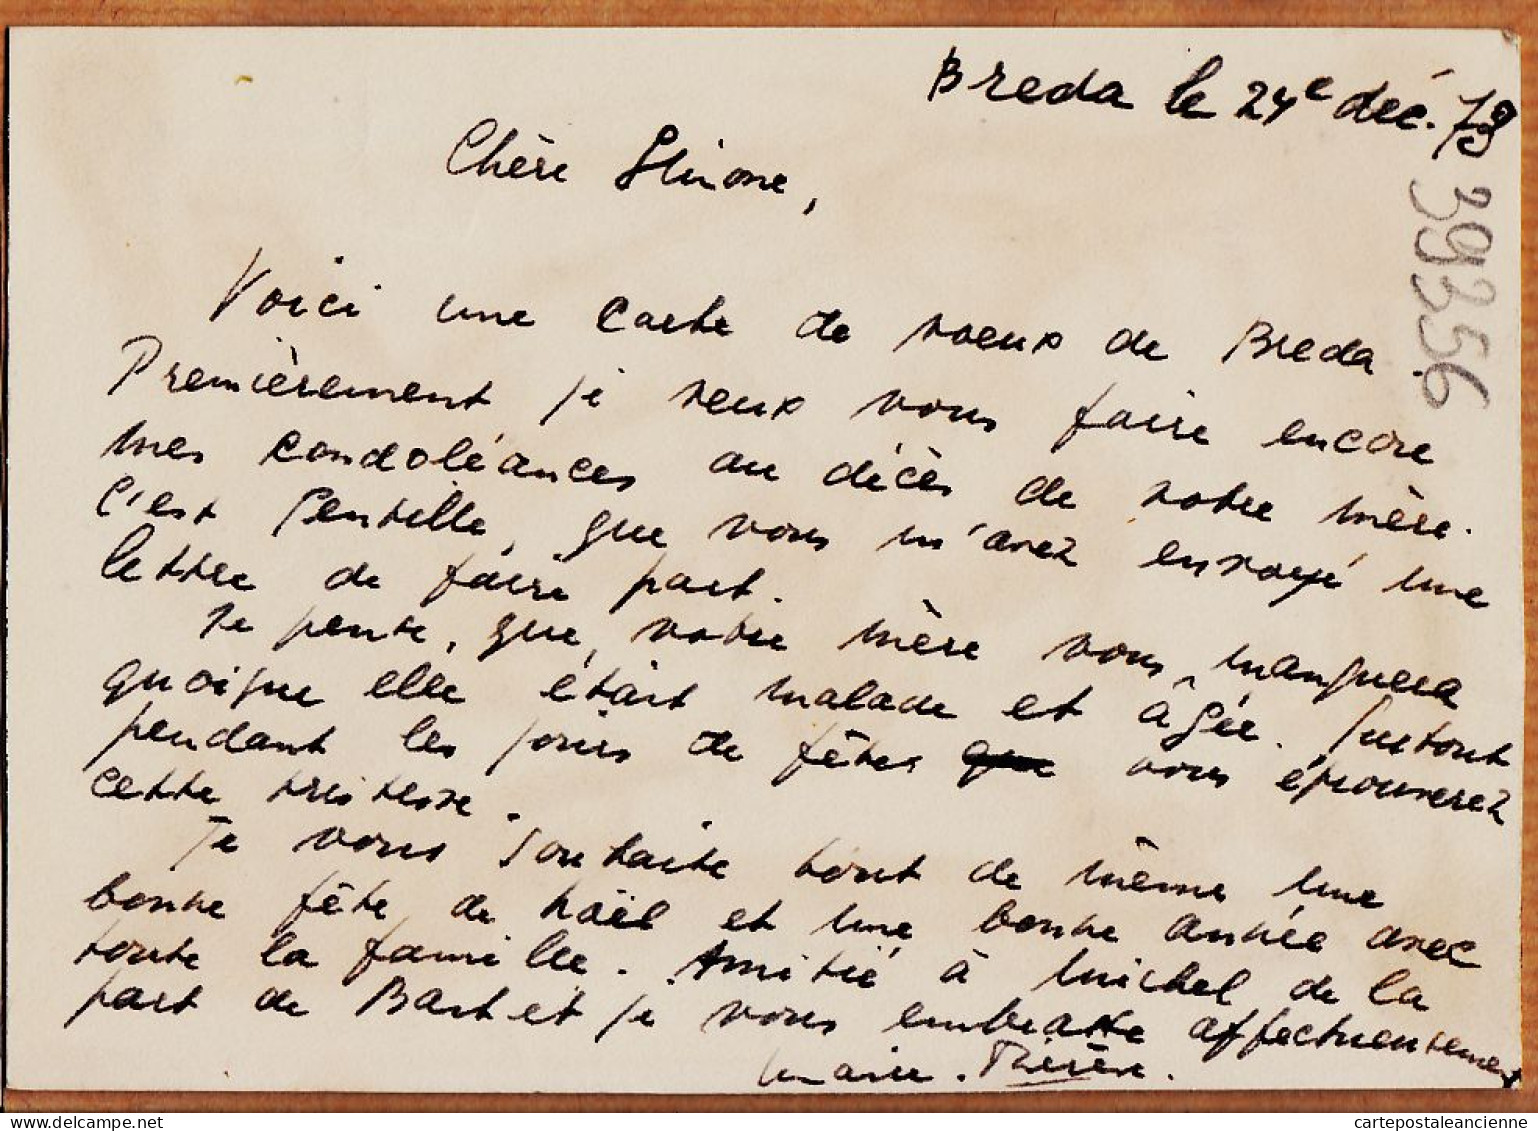 Breda le 24e déc. 73
Chère Simone,
39356
Voici une carte de voeux de Breda.
Premièrement je veux vous faire encore
mes condoléances au décès de votre mère.
C'est gentille, que vous m'avez envoyé une
lettre de faire part.
Je pense, que, votre mère vous manquera
quoique elle était malade et âgée. Surtout
pendant les jours de fêtes vous éprouverez
cette tristesse.
Je vous souhaite tout de même une
bonne fête de noël et une bonne année avec
toute la famille. Amitié à Michel de la
part de Bart et je vous embrasse affectueusement
Marie-Thérèse.
cartepostaleancienne